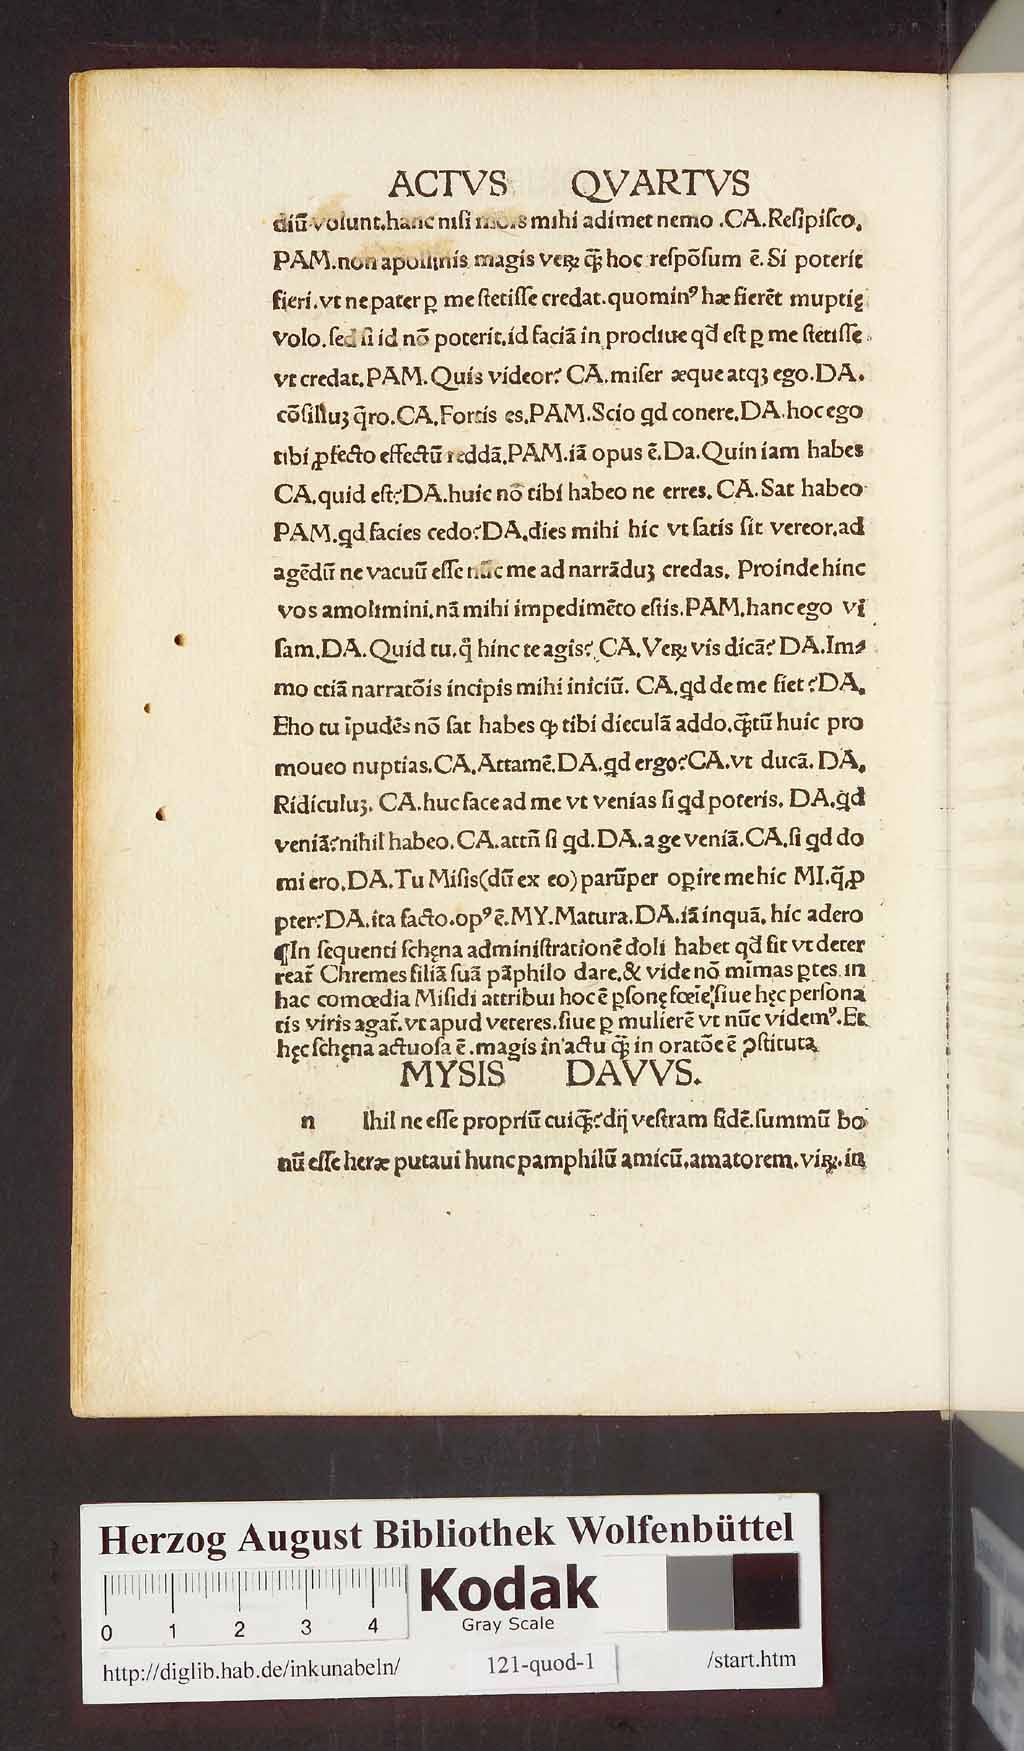 ACTVS QVARTVS
diū volunt.hanc nisi mors mihi adimet nemo .CA.Resipisco.
PAM.non apollinis magis veꝝ q̄ꝫ hoc respōsum ē.Si poterit
fieri.vt ne pater ꝑ me stetisse credat.quominꝰ hæ fierēt muptię
volo.sed si id nō poterit.id faciā in procliue qd̄ est ꝑ me stetisse
vt credat.PAM.Quis videor? CA.miser æque atqꝫ ego.DA.
cōsilluꝫ q̄ro.CA.Fortis es.PAM.Scio qd conere.DA.hoc ego
tibi ꝓfecto effectū reddā.PAM.iā opus ē.Da.Quin iam habes
CA.quid est?DA.huic nō tibi habeo ne erres. CA.Sat habeo
PAM.qd facies cedo?DA.dies mihi hic vt satis sit vereor.ad
agēdū ne vacuū esse nūc me ad narrāduꝫ credas. Proinde hinc
vos amolimini.nā mihi impedimēto estis.PAM.hanc ego vi
sam.DA.Quid tu.q̊ hinc te agis? CA.Veꝝ vis dicā? DA.Im⸗
mo etiā narratōis incipis mihi iniciū. CA.qd de me fiet?DA.
Eho tu īpudēs nō sat habes ꝙ tibi dieculā addo.q̄ꝫtū huic pro
moueo nuptias.CA.Attamē.DA.qd ergo?CA.vt ducā. DA.
Ridiculuꝫ. CA.huc face ad me vt venias si qd poteris. DA.qd
veniā?nihil habeo.CA.attn̄ si qd.DA.age veniā.CA.si qd do
mi ero.DA.Tu Misis(dū ex eo)parūper oꝑire me hic MI.q̄ꝓ
pter?DA.ita facto.opꝰ ē.MY.Matura.DA.iā inquā. hic adero
¶In sequenti schęna administrationē doli habet qd̄ sit vt deter
reaꝉ Chremes filiā suā pāphilo dare.& vide nō mīmas ꝑtes in
hac comœdia Misidi attribui hoc ē ꝑsonę fœīe,siue hęc persona
tis viris agaꝉ.vt apud veteres.siue ꝑ mulierē vt nūc videmꝰ.Et
hęc schęna actuosa ē.magis in actu q̄ꝫ in oratōe ē ꝯstituta
MYSIS DAVVS.
n Ihil ne esse propriū cuiq̄ꝫ?dij vestram fidē.summū bo
nū esse heræ putaui hunc pamphilū amicū.amatorem.viꝝ.in
Herzog August Bibliothek Wolfenbüttel
0 1 2 3 4
Kodak
Gray Scale
http://diglib.hab.de/inkunabeln/ 121-quod-1 /start.htm